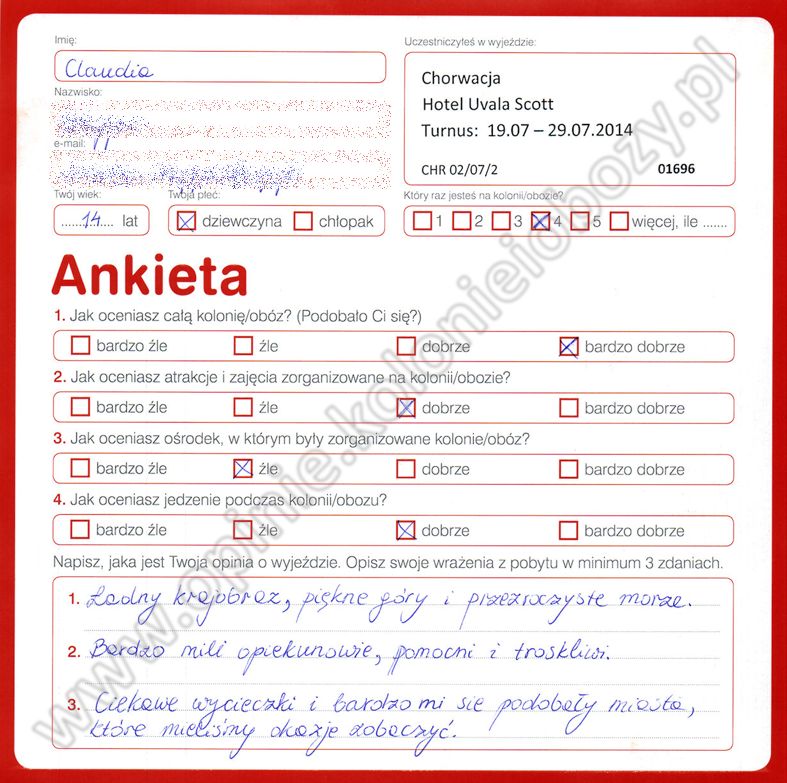 Imię:
Claudia
Nazwisko:
e-mail:
Twój wiek:
14 lat
Twoja płeć:
dziewczyna chłopak
Uczestniczyłeś w wyjeździe:
Chorwacja
Hotel Uvala Scott
Turnus: 19.07 – 29.07.2014
CHR 02/07/2 01696
Który raz jesteś na kolonii/obozie?
1 2 3 4 5 więcej, ile .......
Ankieta
1. Jak oceniasz całą kolonię/obóz? (Podobało Ci się?)
bardzo źle źle dobrze bardzo dobrze
2. Jak oceniasz atrakcje i zajęcia zorganizowane na kolonii/obozie?
bardzo źle źle dobrze bardzo dobrze
3. Jak oceniasz ośrodek, w którym były zorganizowane kolonie/obóz?
bardzo źle źle dobrze bardzo dobrze
4. Jak oceniasz jedzenie podczas kolonii/obozu?
bardzo źle źle dobrze bardzo dobrze
Napisz, jaka jest Twoja opinia o wyjeździe. Opisz swoje wrażenia z pobytu w minimum 3 zdaniach.
1. Ładny krajobraz, piękne góry i przezroczyste morze.
2. Bardzo mili opiekunowie, pomocni i troskliwi.
3. Ciekawe wycieczki i bardzo mi się podobały miasta,
które mieliśmy okazje zobaczyć.
www.opinie.kolonieiobozy.pl